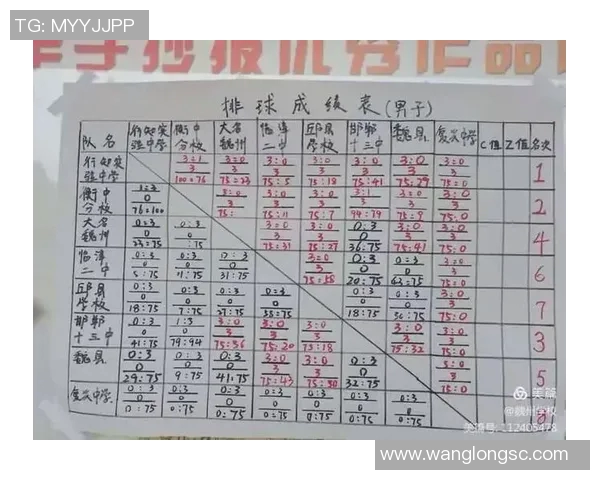 TG: MYYJJPP
手抄报优秀作品
排球成绩表(男子)
队名 行知实验中学 衡中分校 大名魏州 临漳二中 邱县学校 邯郸十三中 魏县 复兴中学 C值 Z值 名次
行知实验中学 3:1 3 100:76 3:0 3 75:23 3:0 3 75:5 3:0 3 75:18 3:0 3 75:41 3:0 3 75:29 3:0 3 75:0 1
衡中分校 1:3 0 76:100 3:0 3 75: 3:0 3 75:11 3:0 3 75:7 3:1 3 94:79 3:0 3 75:9 3:0 3 75:0 2
大名魏州 0:3 0 23:75 0:3 0 :75 3:0 3 75:31 3:0 3 75:27 0:3 0 36:75 3:0 3 75:41 3:0 3 75:0 4
临漳二中 0:3 0 5:75 0:3 0 11:75 0:3 0 31:75 3:0 3 75:58 0:3 0 20:75 0:3 0 43:75 3:0 3 75:0 6
邱县学校 0:3 0 18:75 0:3 0 7:75 0:3 0 27:75 0:3 0 0:3 0 18:75 0:3 0 3:0 3 75:0 7
邯郸十三中 0:3 0 41:75 1:3 0 79:94 3:0 3 75:36 3:0 3 75:20 3:0 3 75:18 3:0 3 75:32 3:0 3 75:0 3
魏县 0:3 0 29:75 0:3 0 9:75 0:3 0 41:75 3:0 3 75:43 3:0 3 0:3 0 32:75 3:0 3 75:0 5
复兴中学 0:3 0 0:75 0:3 0 0:75 0:3 0 0:75 0:3 0 0:75 0:3 0 0:75 0:3 0 0:75 0:3 0 0:75
美篇
@魏州学校
美篇号:112405478
www.wanglongsc.com